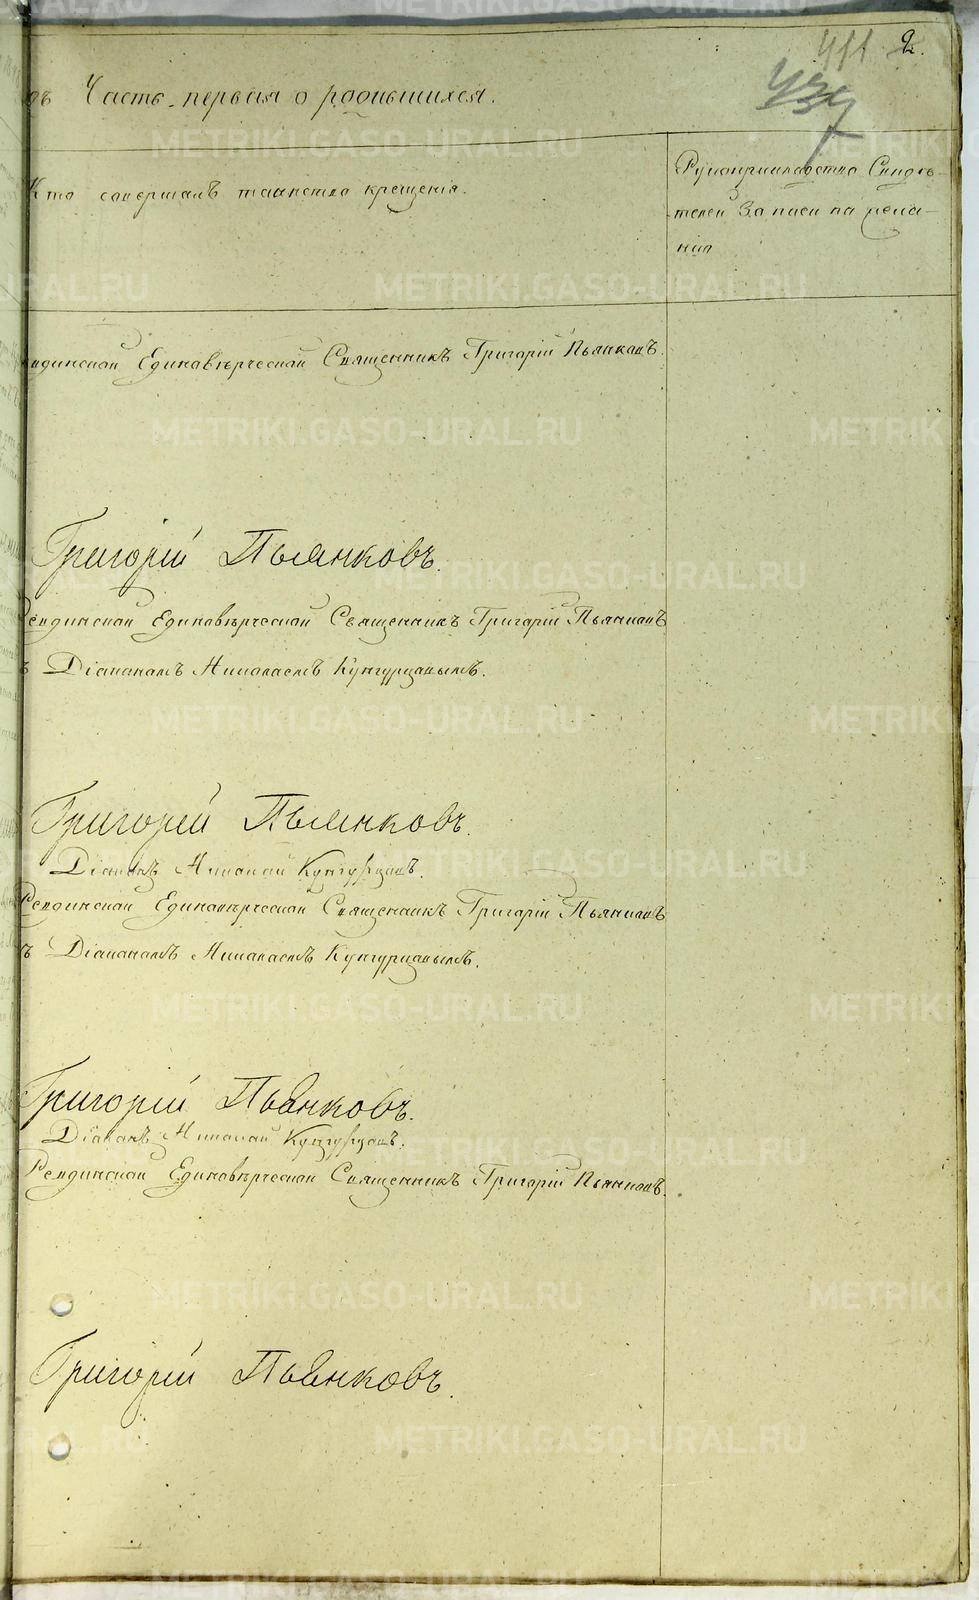 411 2.
437
одъ Часть первая о родившихся.
Кто совершалъ таинство крещенія.
Рукоприкладство Свидѣ-
телей Записи по жела-
нію
Единовѣрческой Священникъ Григорій Пьянковъ.
Григорій Пьянковъ.
Ревдинской Единовѣрческой Священникъ Григорій Пьянковъ
съ Діакономъ Николаемъ Кунгурцовымъ.
Григорій Пьянковъ.
Діаконъ Николай Кунгурцовъ.
Ревдинской Единовѣрческой Священникъ Григорій Пьянковъ
съ Діакономъ Николаемъ Кунгурцовымъ.
Григорій Пьянковъ.
Діаконъ Николай Кунгурцовъ.
Ревдинской Единовѣрческой Священникъ Григорій Пьянковъ.
Григорій Пьянковъ.
METRIKI.GASO-URAL.RU